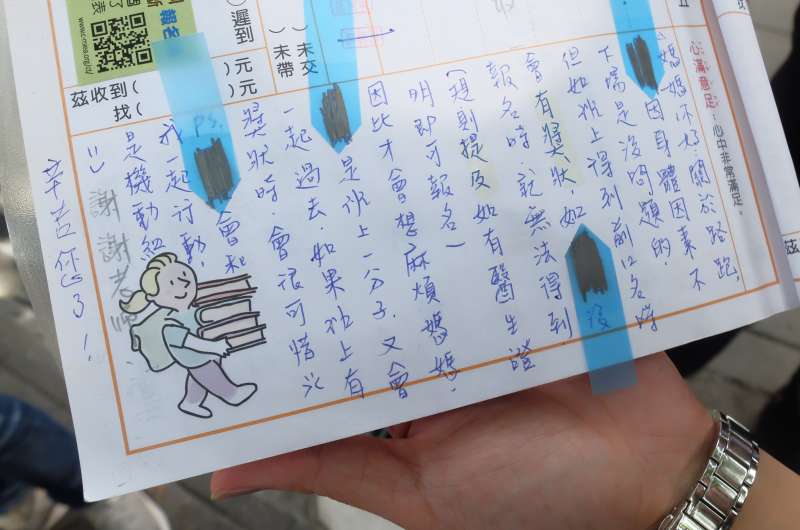 心滿意足：心中非常滿足。
媽媽你好：關於路跑，
因身體因素不
下場是沒問題的，
但如班上得到前12名時
會有獎狀，如 沒
報名時，就無法得到，
(規則提及如有醫生證
明即可報名)
因此才會想麻煩媽媽，
是班上一分子，又會
一起過去，如果班上有
獎狀時，會很可惜
P.S. 會和
我一起行動，
是機動組
謝謝老師
辛苦您了！
遲到
( )未交
( )未帶
茲收到( )元
找( )元
www.cmea.org/q/